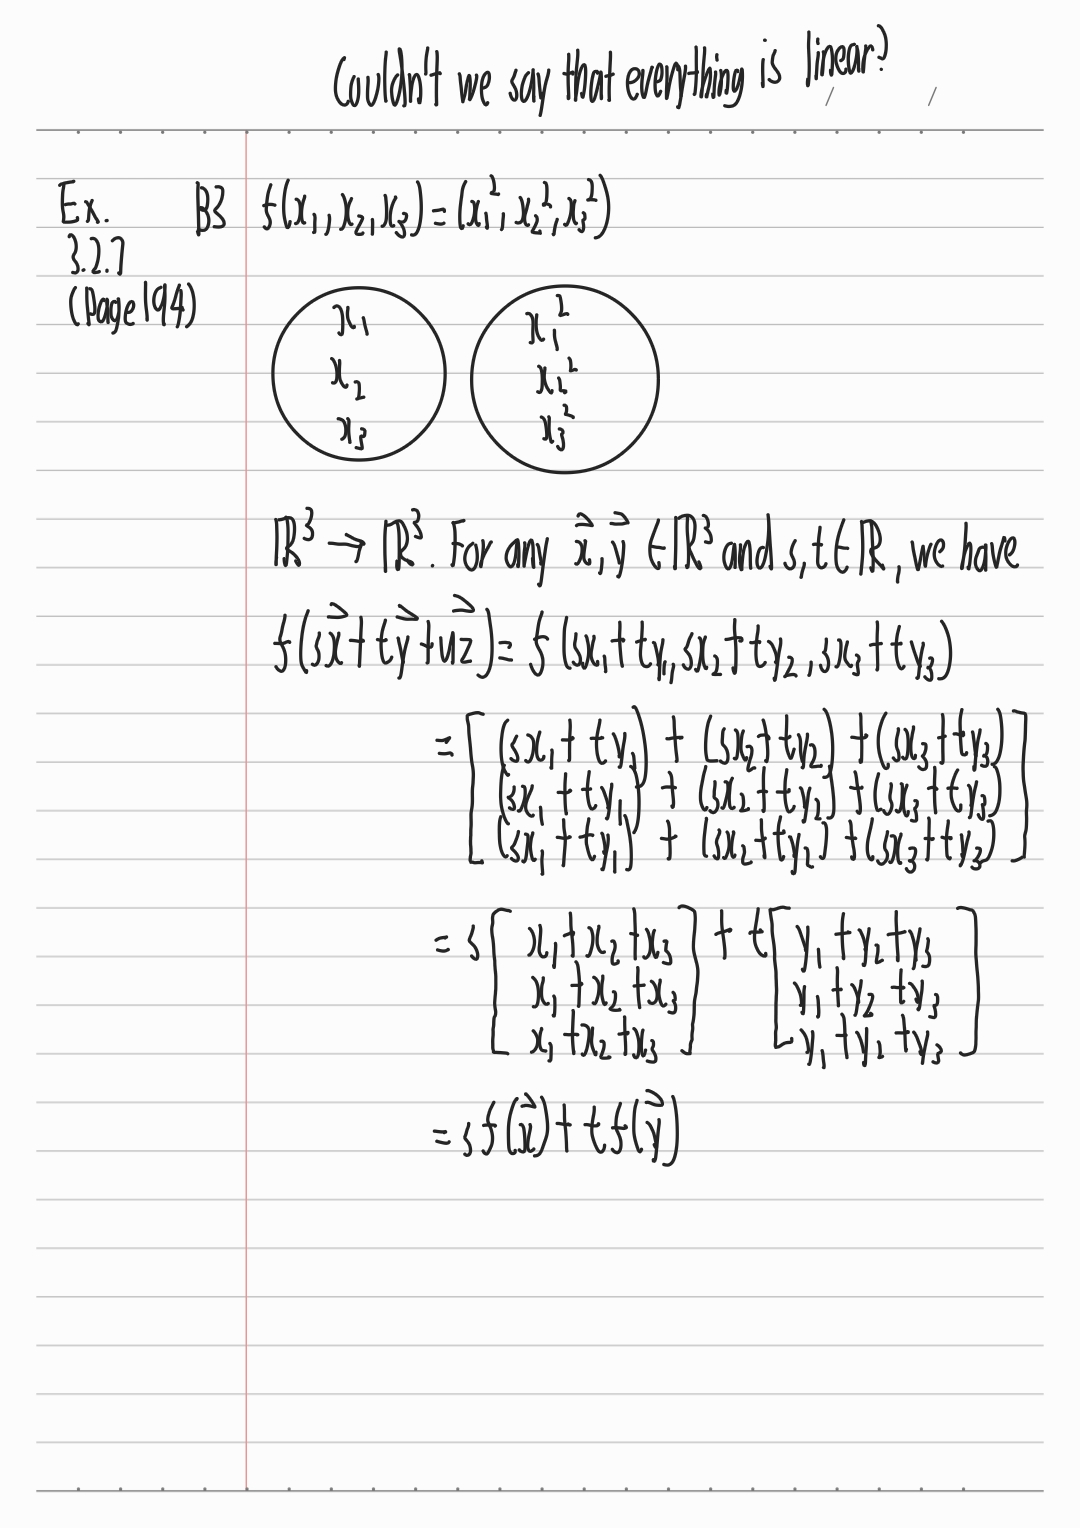 Couldn't we say that everything is linear?
Ex. B3 f(x₁, x₂, x₃) = (x₁², x₂², x₃²)
3.2.7
(Page 194)
x₁ x₁²
x₂ x₂²
x₃ x₃²
ℝ³ → ℝ³. For any x⃗, y⃗ ∈ ℝ³ and s, t ∈ ℝ, we have
f(sx⃗ + ty⃗ + uz⃗) = f(sx₁ + ty₁, sx₂ + ty₂, sx₃ + ty₃)
= [ (sx₁ + ty₁) + (sx₂ + ty₂) + (sx₃ + ty₃)
(sx₁ + ty₁) + (sx₂ + ty₂) + (sx₃ + ty₃)
(sx₁ + ty₁) + (sx₂ + ty₂) + (sx₃ + ty₃) ]
= s [ x₁ + x₂ + x₃ ] + t [ y₁ + y₂ + y₃ ]
x₁ + x₂ + x₃ y₁ + y₂ + y₃
x₁ + x₂ + x₃ y₁ + y₂ + y₃
= s f(x⃗) + t f(y⃗)